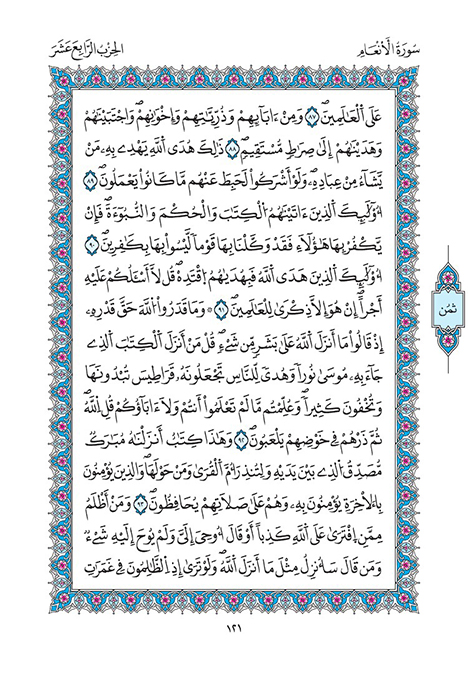 سُورَةُ الْأَنْعَامِ
الحِزْبُ الرَّابِعَ عَشَرَ
عَلَى اَ۬لْعَٰلَمِينَۖ ٨٧ وَمِنَ اٰبَآئِهِمْ وَذُرِّيَّٰتِهِمْ وَإِخْوَٰنِهِمْۖ وَاجْتَبَيْنَٰهُمْ
وَهَدَيْنَٰهُمُۥٓ إِلَىٰ صِرَٰطٖ مُّسْتَقِيمٖۖ ٨٨ ذَٰلِكَ هُدَى اَ۬للَّهِ يَهْدِے بِهِۦ مَنْ
يَّشَآءُ مِنْ عِبَادِهِۦۖ وَلَوَ اَشْرَكُواْ لَحَبِطَ عَنْهُم مَّا كَانُواْ يَعْمَلُونَۖ ٨٩
أُوْلَٰٓئِكَ اَ۬لذِينَ ءَاتَيْنَٰهُمُ اُ۬لْكِتَٰبَ وَالْحُكْمَ وَالنُّبُوٓءَةَۖ فَإِنْ
يَّكْفُرْ بِهَا هَٰٓؤُلَآءِ فَقَدْ وَكَّلْنَا بِهَا قَوْماٗ لَّيْسُواْ بِهَا بِكَٰفِرِينَۖ ٩٠
أُوْلَٰٓئِكَ اَ۬لذِينَ هَدَى اَ۬للَّهُ فَبِهُدَيٰهُمُ اُ۪قْتَدِهْۖ قُل لَّآ أَسْـَٔلُكُمْ عَلَيْهِ
أَجْراًۖ إِنْ هُوَ إِلَّا ذِكْرَىٰ لِلْعَٰلَمِينَۖ ٩١ ۞ وَمَا قَدَرُواْ اُ۬للَّهَ حَقَّ قَدْرِهِۦٓ
إِذْ قَالُواْ مَآ أَنزَلَ اَ۬للَّهُ عَلَىٰ بَشَرٖ مِّن شَےْءٖۖ قُلْ مَنَ اَنزَلَ اَ۬لْكِتَٰبَ اَ۬لذِے
جَآءَ بِهِۦ مُوسَىٰ نُوراٗ وَهُدىٗ لِّلنَّاسِ تَجْعَلُونَهُۥ قَرَاطِيسَ تُبْدُونَهَا
وَتُخْفُونَ كَثِيراٗۖ وَعُلِّمْتُم مَّا لَمْ تَعْلَمُوٓاْ أَنتُمْ وَلَآ ءَابَآؤُكُمْۖ قُلِ اِ۬للَّهُۖ
ثُمَّ ذَرْهُمْ فِے خَوْضِهِمْ يَلْعَبُونَۖ ٩٢ وَهَٰذَا كِتَٰبٌ اَنزَلْنَٰهُ مُبَٰرَكٞ
مُّصَدِّقُ اُ۬لذِے بَيْنَ يَدَيْهِ وَلِتُنذِرَ أُمَّ اَ۬لْقُرَىٰ وَمَنْ حَوْلَهَاۖ وَالذِينَ يُؤْمِنُونَ
بِالَاخِرَةِ يُؤْمِنُونَ بِهِۦۖ وَهُمْ عَلَىٰ صَلَاتِهِمْ يُحَافِظُونَۖ ٩٣ وَمَنَ اَظْلَمُ
مِمَّنِ اِ۪فْتَرَىٰ عَلَى اَ۬للَّهِ كَذِباً اَوْ قَالَ أُوحِيَ إِلَيَّ وَلَمْ يُوحَ إِلَيْهِ شَےْءٞ
وَمَن قَالَ سَأُنزِلُ مِثْلَ مَآ أَنزَلَ اَ۬للَّهُۖ وَلَوْ تَرَىٰٓ إِذِ اِ۬لظَّٰلِمُونَ فِے غَمَرَٰتِ
ثُمُن
١٢١